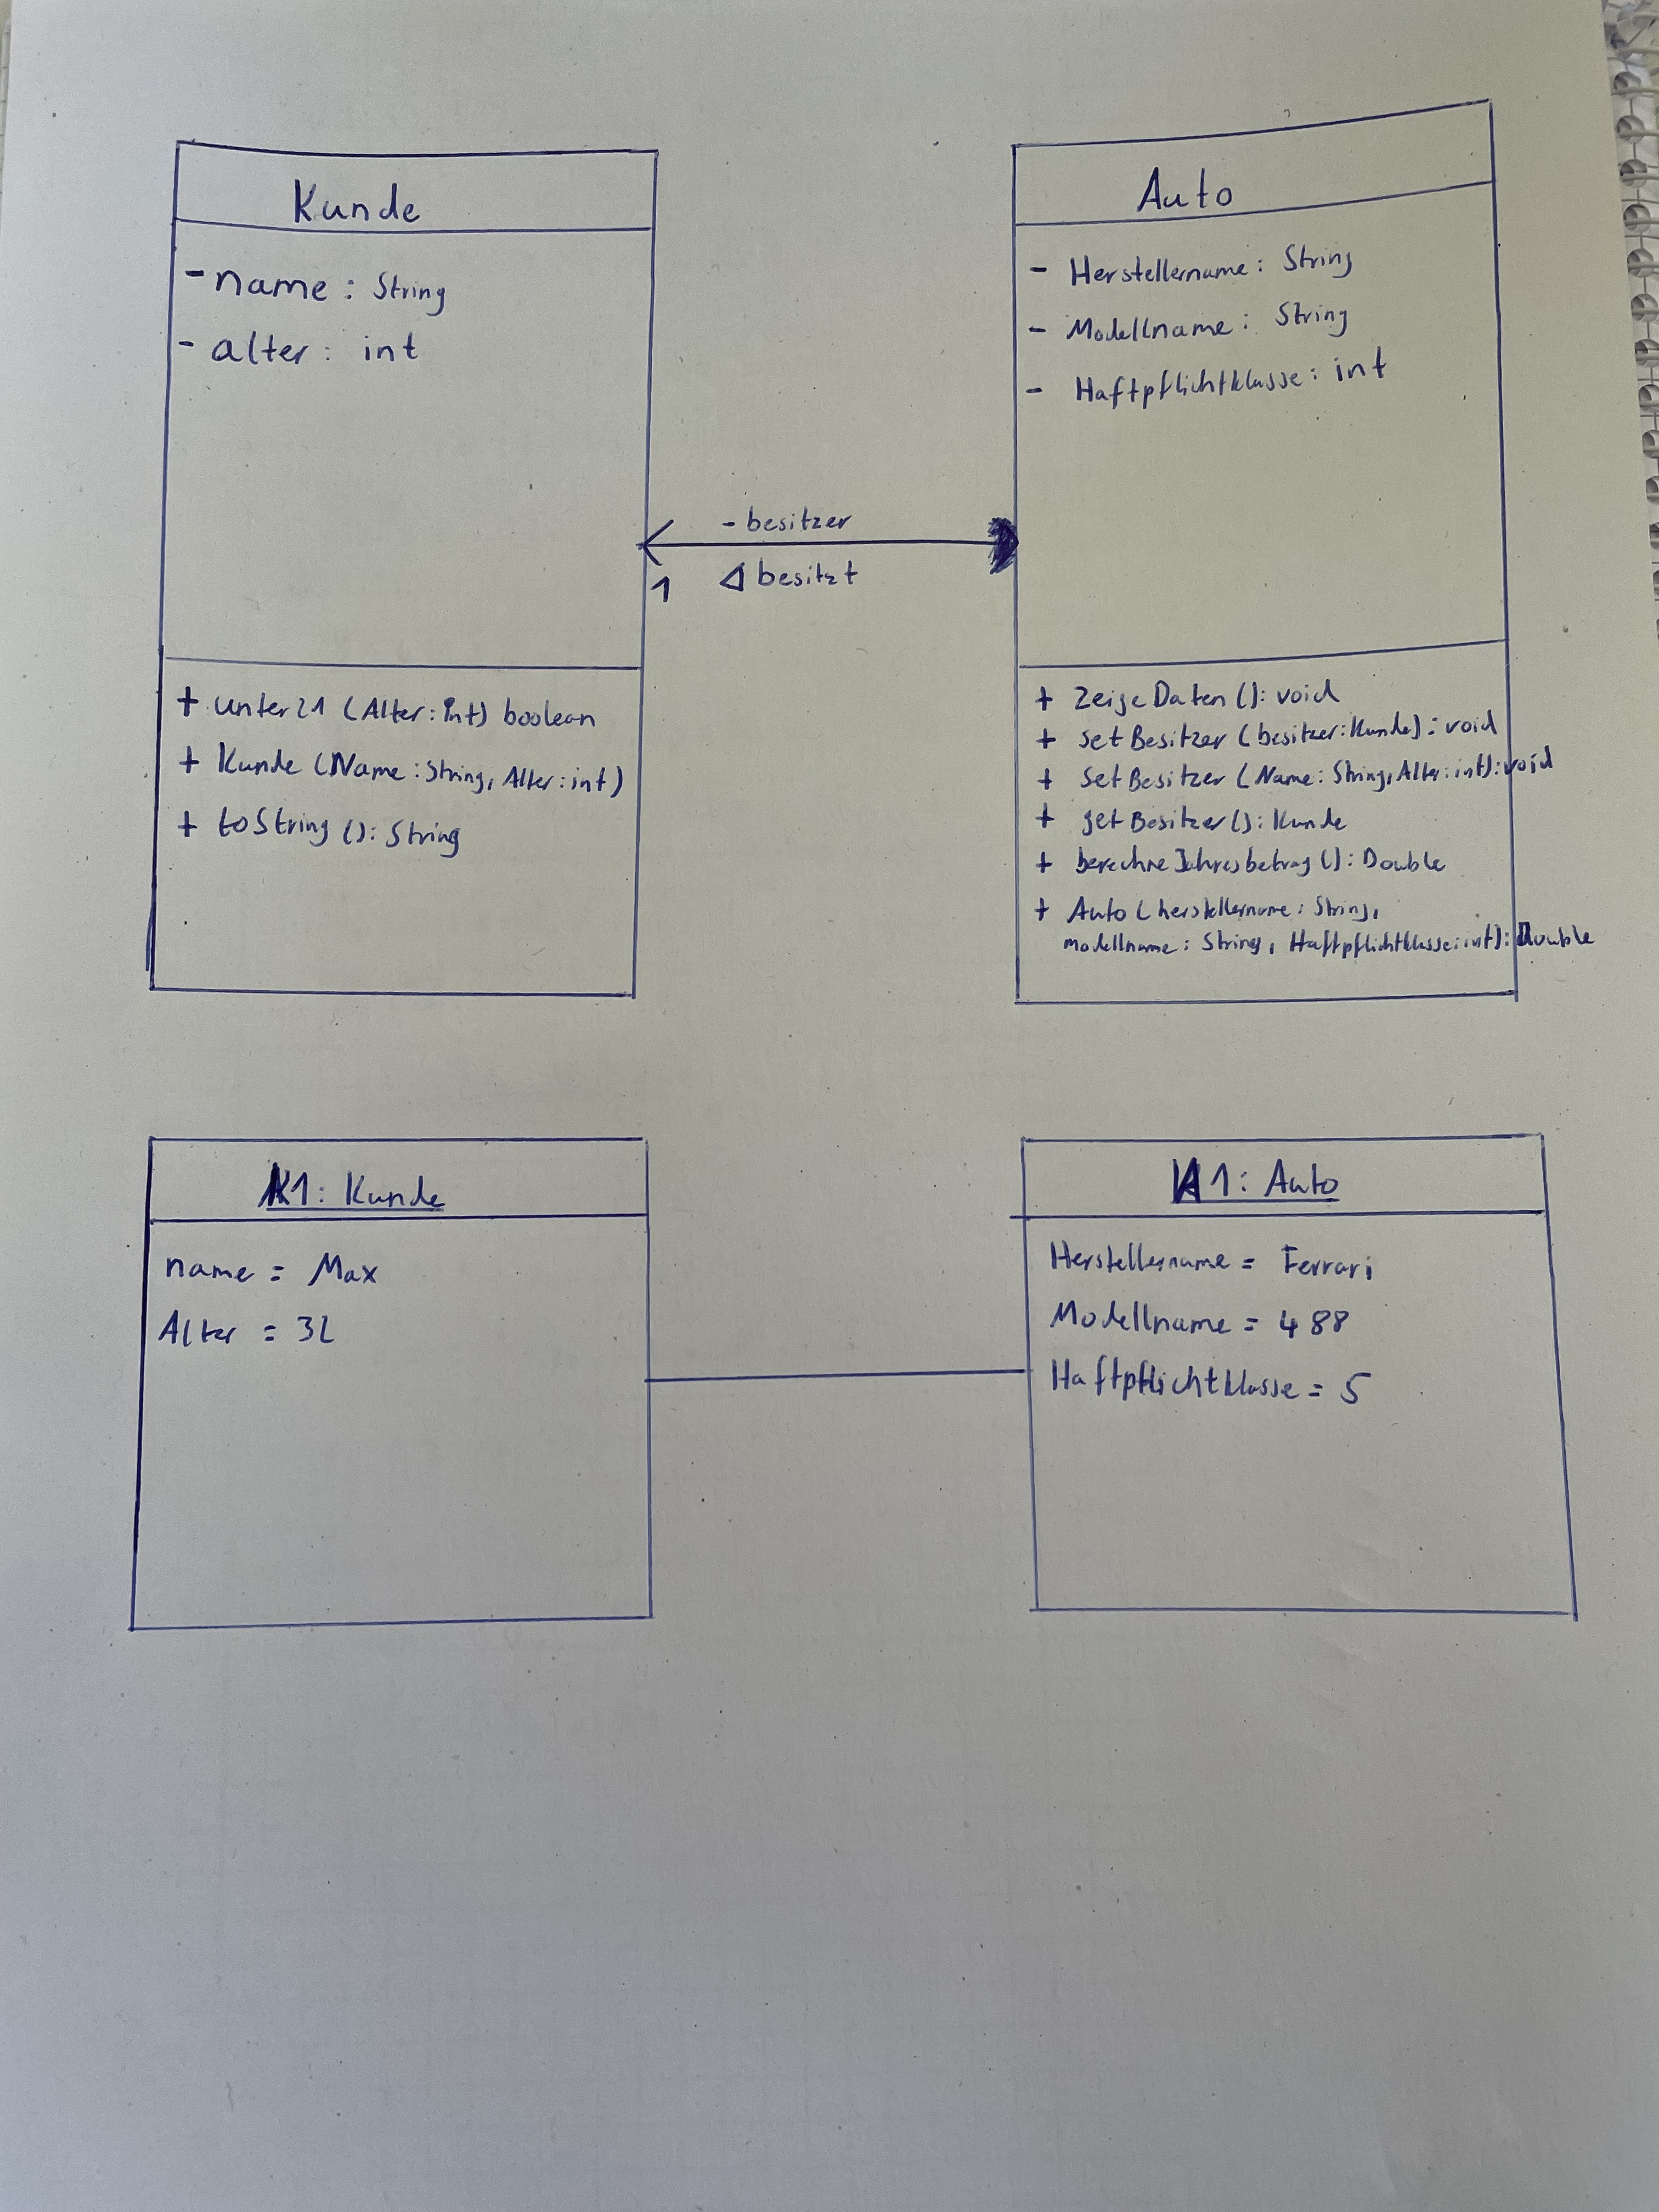 Kunde
- name : String
- alter : int
+ unter21 (Alter: int) boolean
+ Kunde (Name : String, Alter : int)
+ toString (): String
- besitzer
1 ◁ besitzt
Auto
- Herstellername : String
- Modellname : String
- Haftpflichtklasse : int
+ zeigeDaten (): void
+ setBesitzer (besitzer: Kunde) : void
+ setBesitzer (Name : String, Alter : int): void
+ getBesitzer (): Kunde
+ berechneJahresbetrag (): Double
+ Auto (herstellername : String,
modellname : String, Haftpflichtklasse: int): Double
K1 : Kunde
name = Max
Alter = 32
A1 : Auto
Herstellername = Ferrari
Modellname = 488
Haftpflichtklasse = 5